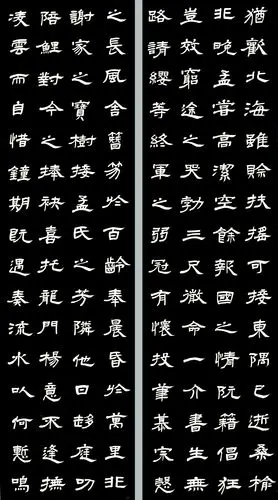 猶歡北海雖賒扶搖可接東隅已逝桑榆
非晚孟嘗高潔空餘報國之情阮籍倡狂
豈效窮途之哭勃三尺微命一介書生無
路請纓等終軍之弱冠有懷投筆慕宗愨
之長風舍簪笏扵百齡奉晨昏扵萬里非
謝家之寶樹接孟氏之芳隣他日趍庭叨
陪鯉對今之捧袂喜托龍門楊意不逢撫
凌雲而自惜鐘期既遇奏流水以何慙鳴